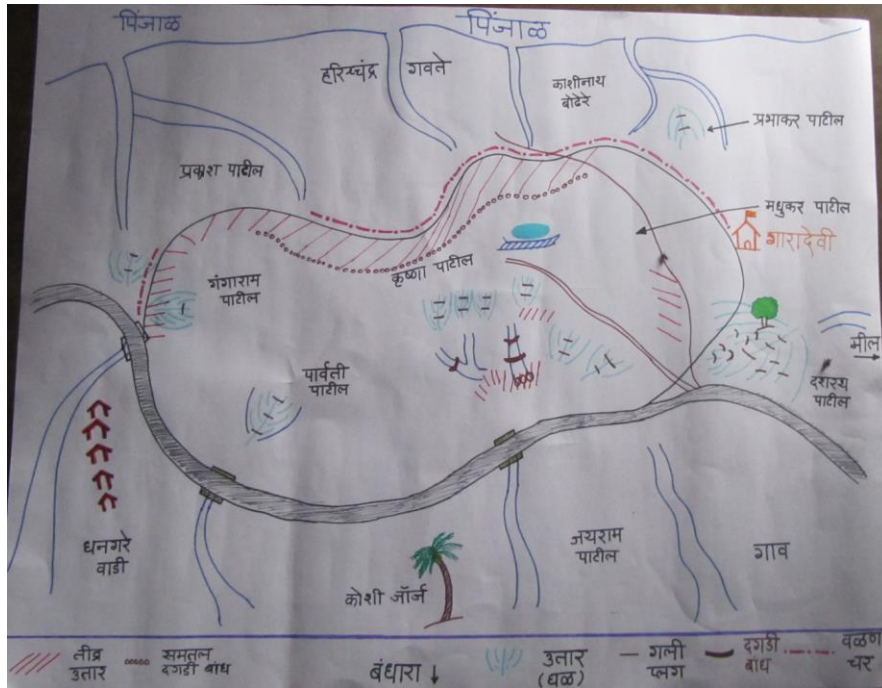 पिंजाळ
पिंजाळ
हरिश्चंद्र गवते
काशीनाथ
बोढेरे
प्रभाकर पाटील
प्रकाश पाटील
मधुकर पाटील
गारादेवी
गंगाराम
पाटील
कृष्णा पाटील
मील
पार्वती
पाटील
दशरथ
पाटील
धनगरे
वाडी
जयराम
पाटील
गाव
कोशी जॉर्ज
तीव्र
उतार
समतल
दगडी बांध
बंधारा
उतार
(घळ)
गली
प्लग
दगडी
बांध
वळण
चर